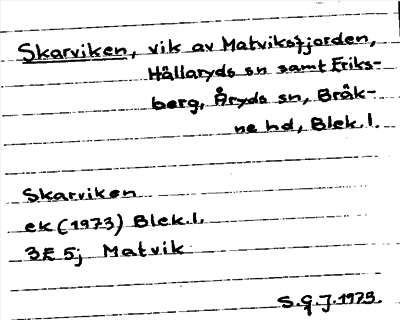 Skarviken, vik av Matviksfjorden,
Hällaryds sn samt Eriks-
berg, Åryds sn, Bräk-
ne hd, Blek.l.
Skarviken
ek (1973) Blek.l.
3E 5j Matvik
S.G.J. 1973.